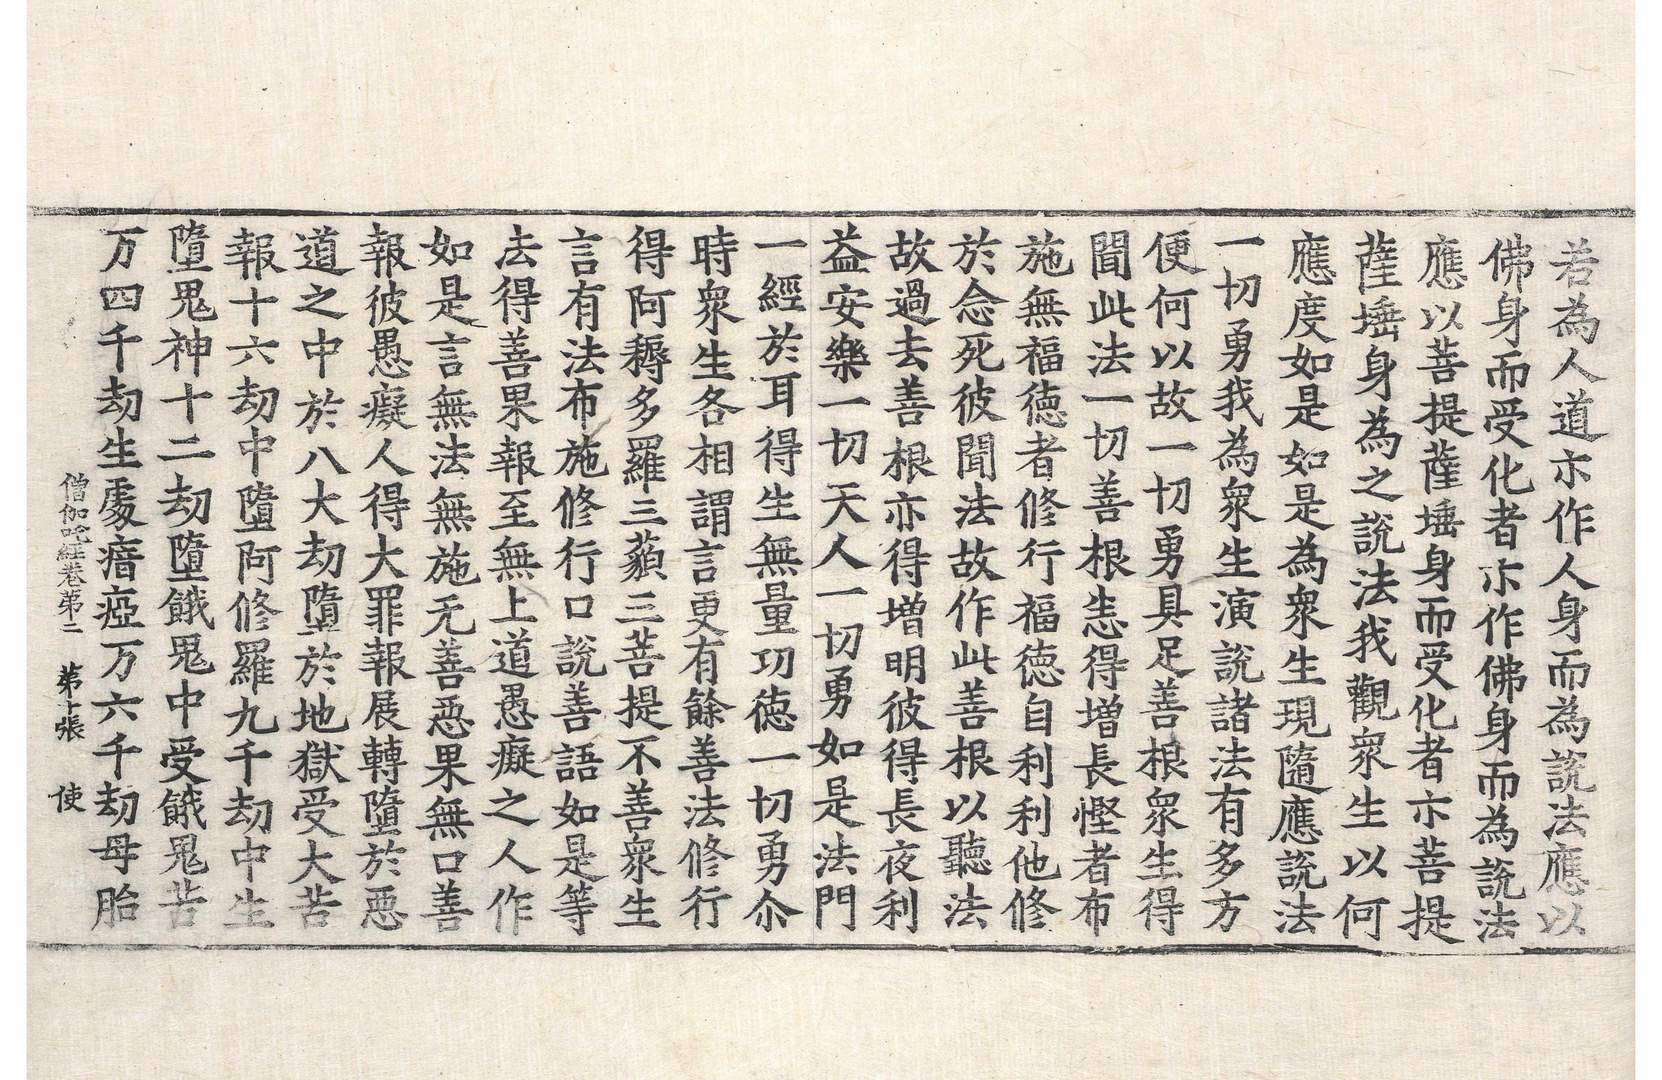 若為人道亦作人身而為說法應以
佛身而受化者亦作佛身而為說法
應以菩提薩埵身而受化者亦菩提
薩埵身為之說法我觀眾生以何
應度如是如是為眾生現隨應說法
一切勇我為眾生演說諸法有多方
便何以故一切勇具足善根眾生得
聞此法一切善根悉得增長慳者布
施無福德者修行福德自利利他修
於念死彼聞法故作此善根以聽法
故過去善根亦得增明彼得長夜利
益安樂一切天人一切勇如是法門
一經於耳得生無量功德一切勇尒
時眾生各相謂言更有餘善法修行
得阿耨多羅三藐三菩提不善眾生
言有法布施修行口說善語如是等
法得善果報至無上道愚癡之人作
如是言無法無施无善惡果無口善
報彼愚癡人得大罪報展轉墮於惡
道之中於八大劫墮於地獄受大苦
報十六劫中墮阿修羅九千劫中生
墮鬼神十二劫墮餓鬼中受餓鬼苦
万四千劫生處瘖瘂万六千劫母胎
僧伽吒經卷第二 第十張 使